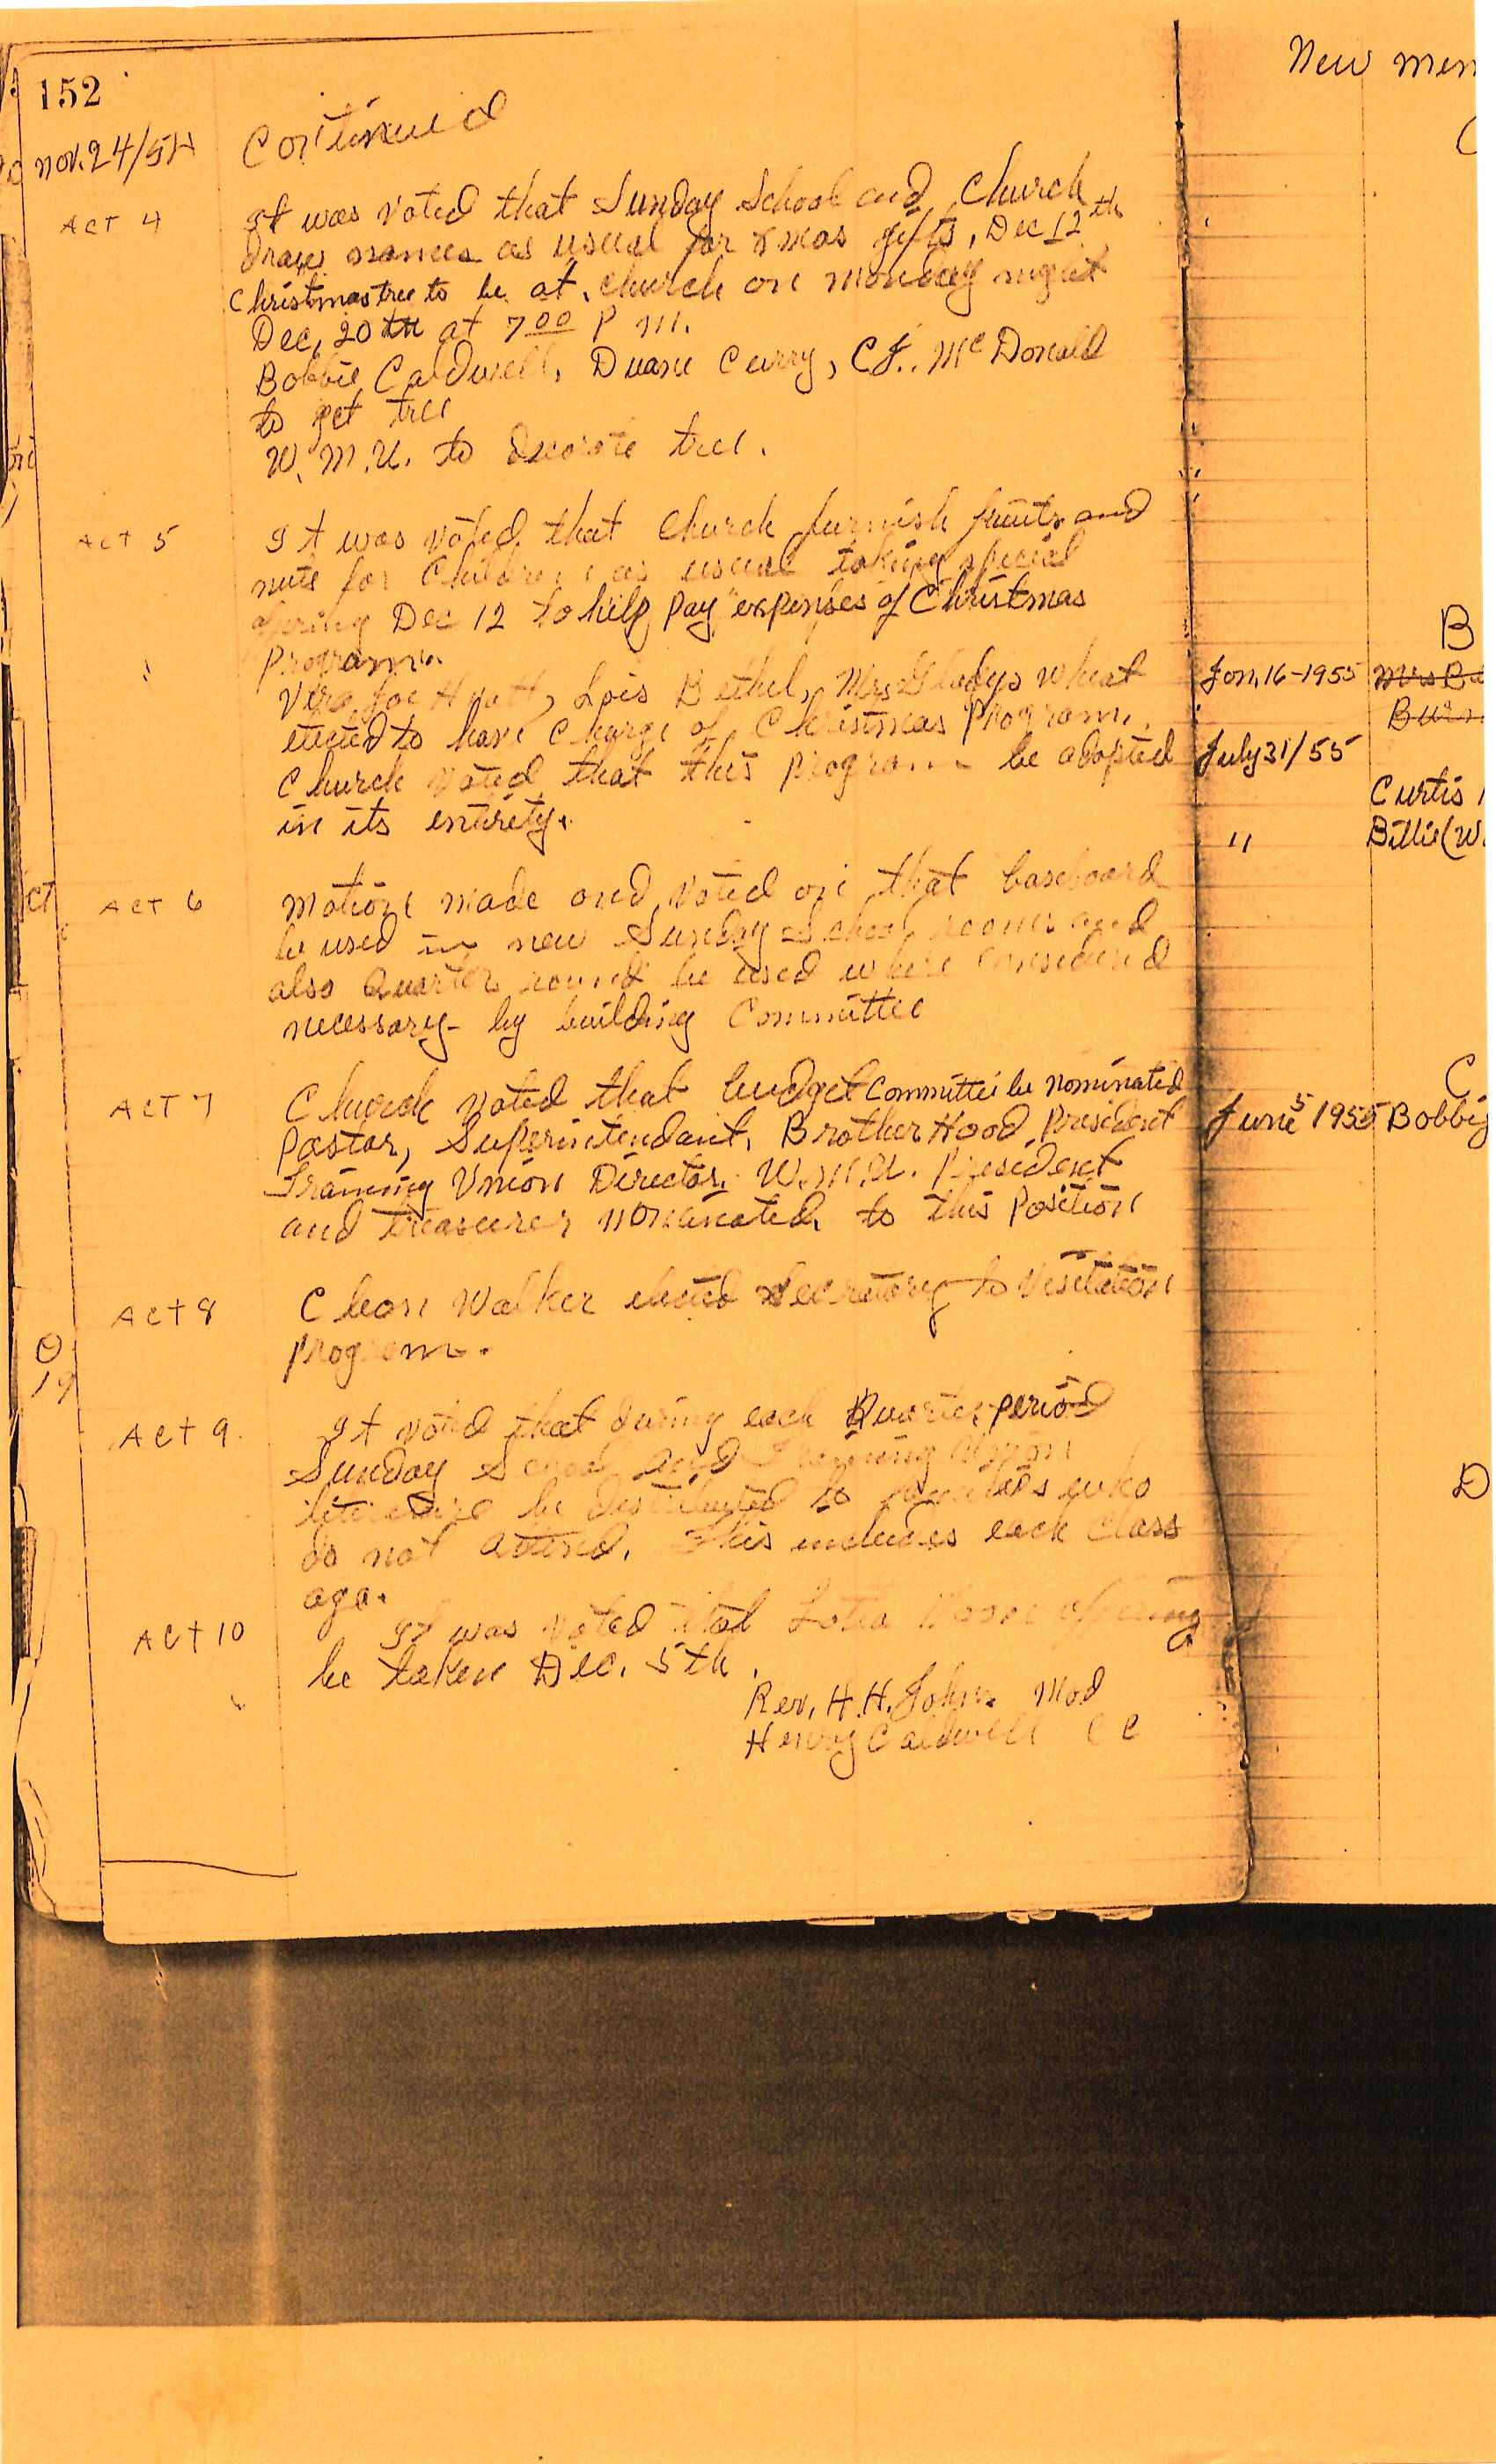 152
Nov. 24/54 Continued
Act 4 It was voted that Sunday School and Church
draw names as usual for Xmas gifts, Dec 12th
Christmas tree to be at church on Monday night
Dec, 20th at 7 00 P M.
Bobbie Caldwell, Duane Curry, C.J. McDonald
to get tree
W. M. U. to decorate tree.
Act 5 It was voted that Church furnish fruits and
nuts for Children as usual taking special
offering Dec 12 to help pay expenses of Christmas
Program.
Lois Bethel, Mrs Gladys
elected to have Charge of Christmas Program.
Church voted that this program be adopted
in its entirety.
Act 6 Motion made and voted on that baseboard
be used in new Sunday School rooms and
also Quarter round be used where considered
necessary by building Committee
Act 7 Church voted that budget Committee be nominated
Pastor, Superintendant, Brother Hood President
Training Union Director, W.M.U. President
and treasurer nominated to this Position
Act 8 Cleon Walker elected Secretary to Visitation
Program.
Act 9. It voted that during each Quarter period
Sunday School and Training Union
literature be distributed to members who
do not attend. This includes each Class
age.
Act 10 It was voted that Lotta Moon offering
be taken Dec. 5th.
Rev, H. H. John Mod
Henry Caldwell C C
New mem
B
Jan, 16-1955 Mrs
July 31/55
Curtis
" Billie (W.
C
June 5 1955 Bobbie
D